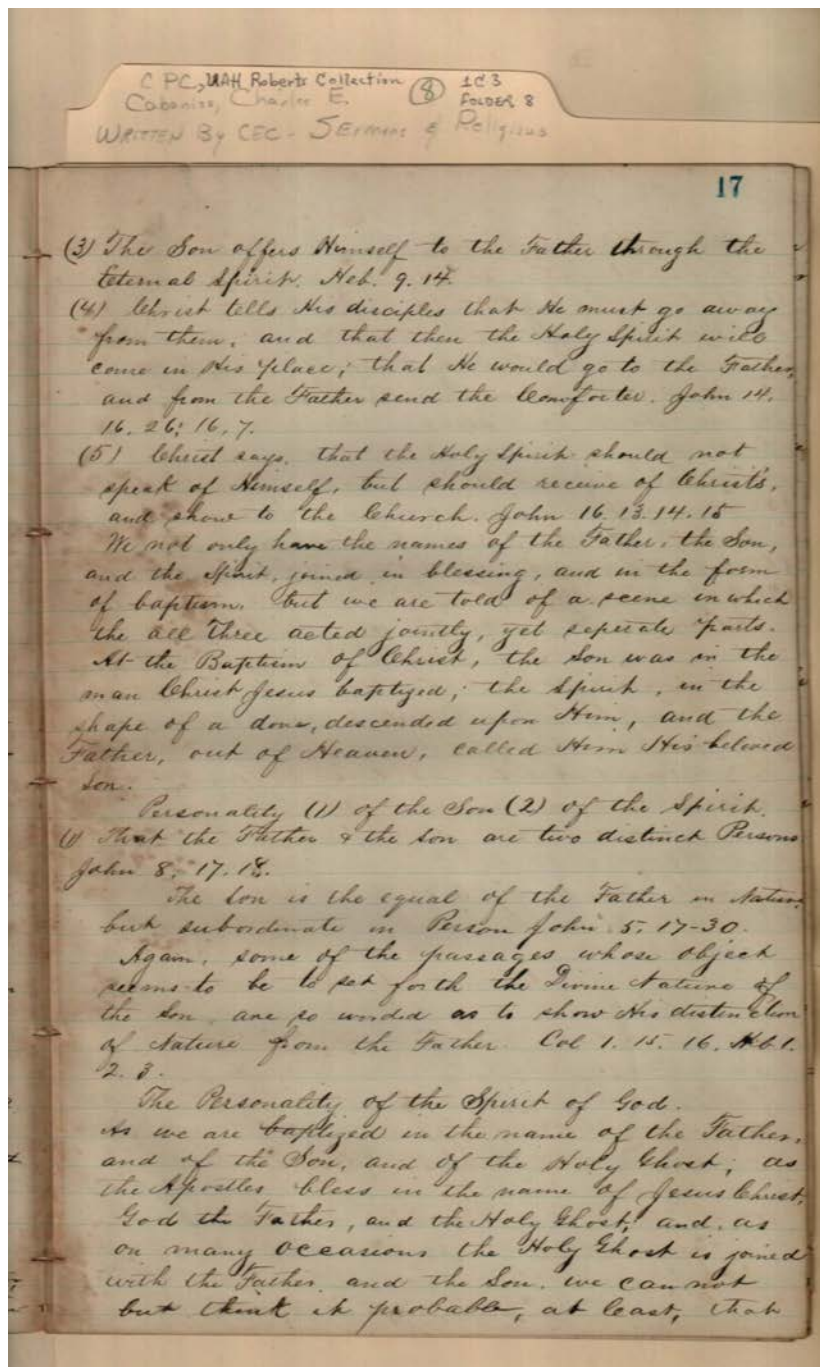 C PC, UAH Roberts Collection
Cabaniss, Charles E.
8
1C3
FOLDER 8
WRITTEN By CEC - SERMONS & Religious
17
(3) The Son offers Himself to the Father through the
Eternal Spirit. Heb. 9. 14.
(4) Christ tells His disciples that He must go away
from them, and that then the Holy Spirit will
come in His place; that He would go to the Father,
and from the Father send the Comforter. John 14.
16. 26; 16. 7.
(5) Christ says, that the Holy Spirit should not
speak of Himself, but should receive of Christ's,
and show to the Church. John 16. 13. 14. 15
We not only have the names of the Father, the Son,
and the Spirit, joined in blessing, and in the form
of baptism, but we are told of a scene in which
the all Three acted jointly, yet seperate parts.
At the Baptism of Christ, the Son was in the
man Christ Jesus baptized; the Spirit, in the
shape of a dove, descended upon Him, and the
Father, out of Heaven, called Him His beloved
Son.
Personality (1) of the Son (2) of the Spirit.
(1) That the Father & the son are two distinct Persons
John 8. 17. 18.
The Son is the equal of the Father in Nature,
but subordinate in Person John 5. 17-30.
Again, some of the passages whose object
seems to be to set forth the Divine Nature of
the Son, are so worded as to show His distinction
of Nature from the Father. Col 1. 15. 16. Heb 1.
2. 3.
The Personality of the Spirit of God.
As we are baptized in the name of the Father,
and of the Son, and of the Holy Ghost; as
the Apostles bless in the name of Jesus Christ,
God the Father, and the Holy Ghost; and, as
on many occasions the Holy Ghost is joined
with the Father, and the Son, we can not
but think it probable, at least, that